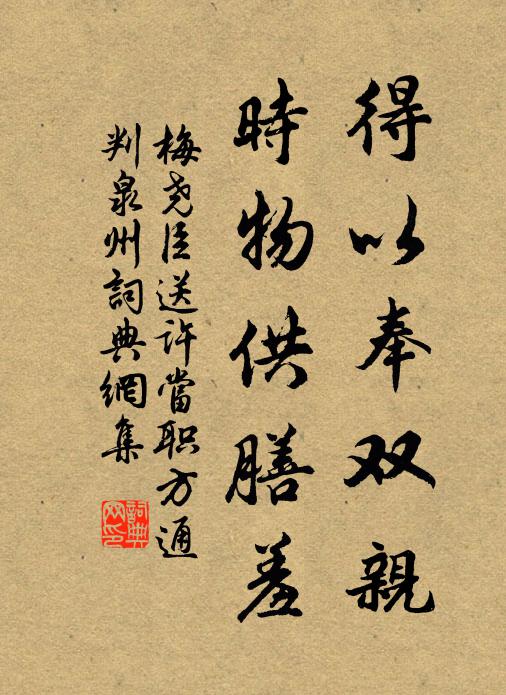 得以奉双親
時物供膳羞
梅尧臣送许當职方通
判泉州詞典網集
詞典
网印